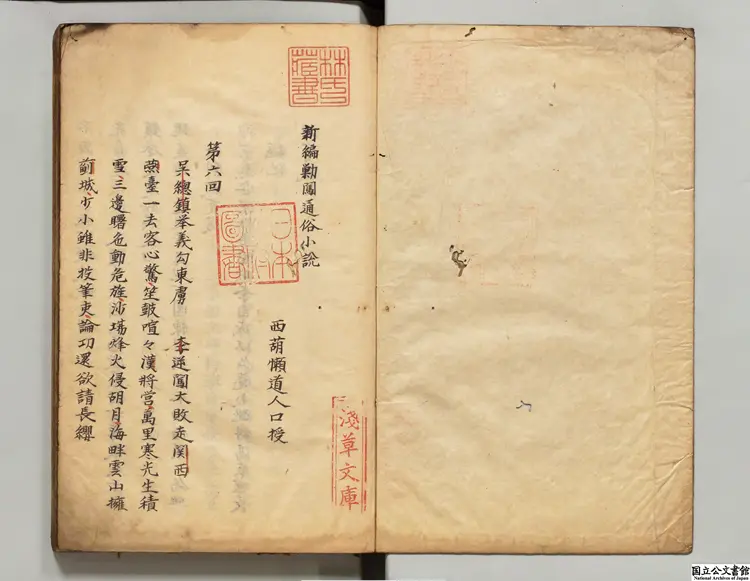 林氏藏書
新編勦闖通俗小說
西葫懶道人口授
淺草文庫
日本政府圖書
第六回
吴總鎮举義勾東虜 李逆闖大敗走関西
燕臺一去客心驚笙皷喧々漢將営萬里寒光生積
雪三邊曙色動危旌沙場烽火侵胡月海畔雲山擁
薊城少小雖非投筆吏論功還欲請長纓
国立公文書館
National Archives of Japan